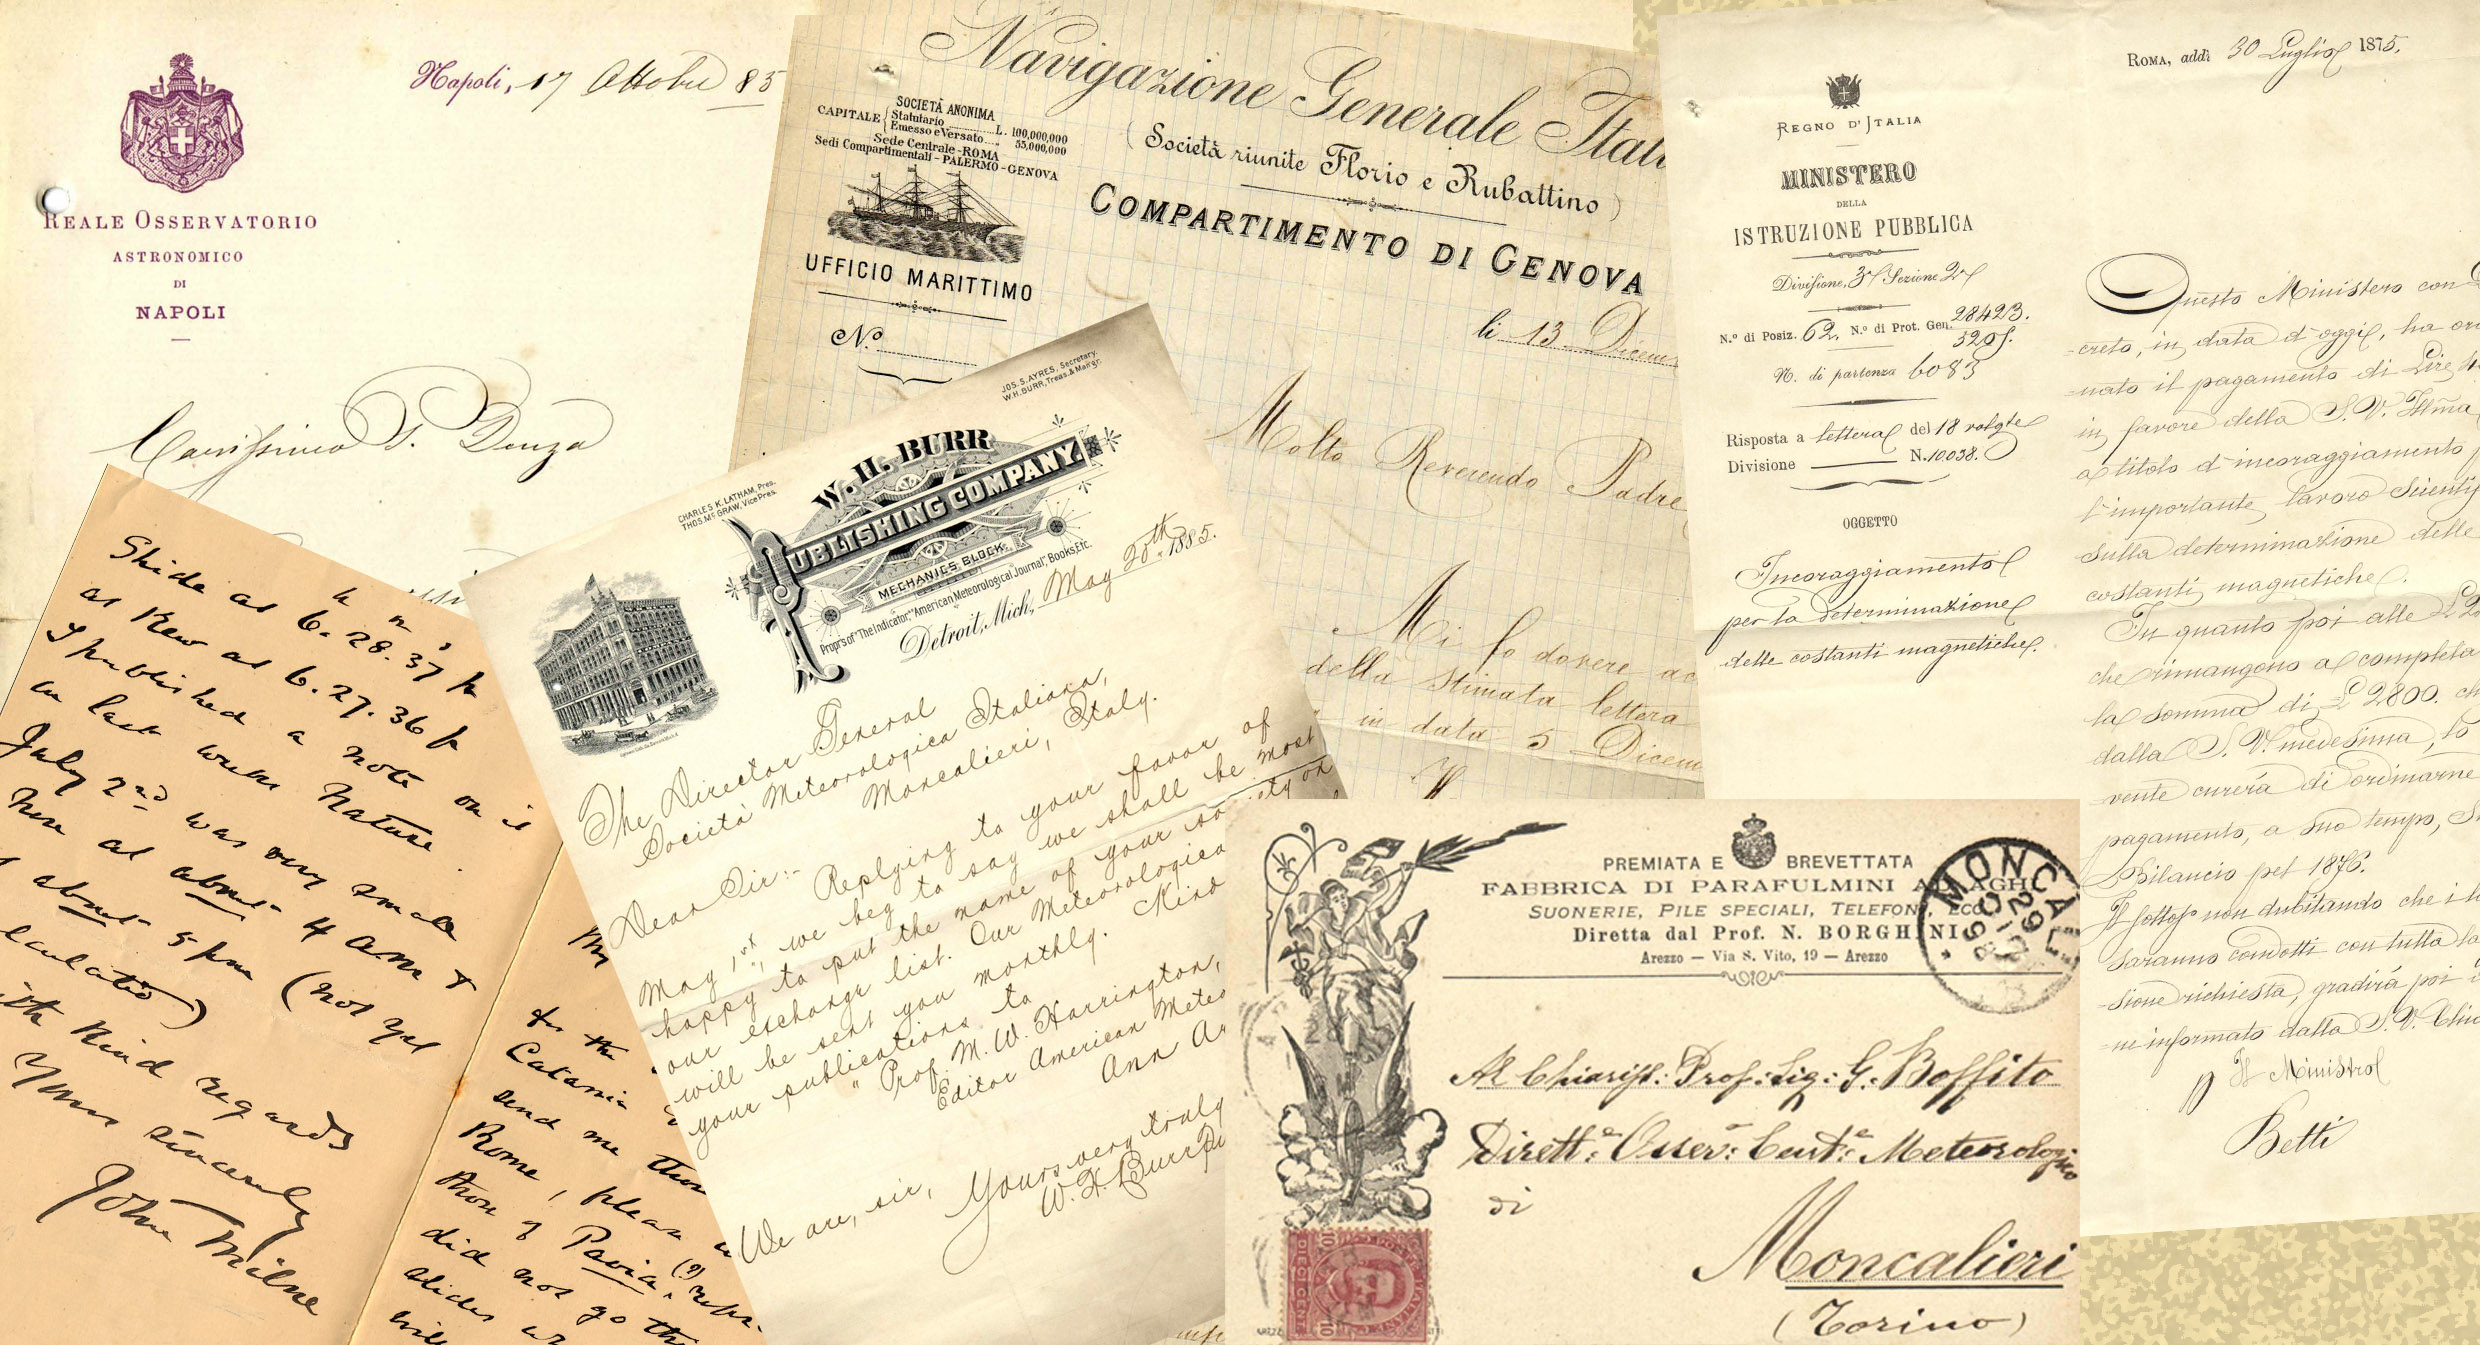 Napoli, 17 Ottobre 85
REALE OSSERVATORIO
ASTRONOMICO
DI
NAPOLI
Carissimo P. Denza
Navigazione Generale Itali
(Società riunite Florio e Rubattino)
COMPARTIMENTO DI GENOVA
SOCIETÀ ANONIMA
CAPITALE { Statutario ... L. 100,000,000
Emesso e Versato ... 55,000,000
Sede Centrale - ROMA
Sedi Compartimentali - PALERMO - GENOVA
UFFICIO MARITTIMO
N.º
li 13 Dicem
Molto Reverendo Padre
Mi fo dovere ac
della stimata lettera
in data 5 Dicem
ROMA, addì 30 Luglio 1875.
REGNO D'ITALIA
MINISTERO
DELLA
ISTRUZIONE PUBBLICA
Divisione, 3ª Sezione 2ª
N.º di Posiz. 62. N.º di Prot. Gen. 28423.
5205.
N. di partenza 6083
Risposta a lettera del 18 volgte
Divisione N. 10038.
OGGETTO
Incoraggiamento
per la determinazione
delle costanti magnetiche.
Questo Ministero con
creto, in data d'oggi, ha or
nato il pagamento di Lire
in favore della S. V. Illma
a titolo d'incoraggiamento
l'importante lavoro scientif
sulla determinazione delle
costanti magnetiche.
In quanto poi alle
che rimangono a completa
la somma di £ 2800. ch
dalla S. V. medesima, lo
vente curerà di ordinarne
pagamento, a suo tempo, su
Bilancio pel 1876.
Il sottoso non dubitando che i l
saranno condotti con tutta la
sione richiesta, gradirà poi
ne informato dalla S. V. Chia
p Il Ministro
Betti
JOS. S. AYRES, Secretary.
W.H. BURR, Treas. & Man'gr.
CHARLES K. LATHAM, Pres.
THOS. McGRAW, Vice Pres.
W. H. BURR
PUBLISHING COMPANY.
MECHANICS BLOCK
Propr's of "The Indicator," "American Meteorological Journal," Books, Etc.
Detroit, Mich., May 20th 1885.
The Director General
Società Meteorologica Italiana,
Moncalieri, Italy.
Dear Sir:-
Replying to your favor of
May 1st, we beg to say we shall be most
happy to put the name of your society on
our exchange list. Our Meteorologica
will be sent you monthly. Kind
your publications to
"Prof. M. W. Harrington,
Editor American Meteo
Ann Ar
We are, sir,
Yours very truly
W. H. Burr Pu
Shide at 6. 28. 37 p
h m s
at Kew at 6. 27. 36 p
I published a note on i
in last weeks Nature
July 2nd was very small
here at about 4 am &
about 5 pm (not yet
lculated)
ith kind regards
Yours sincerely
John Milne
My
to the
Catania
send me those
Rome, please
those of Pavia (?)
did not go th
slides
PREMIATA E BREVETTATA
FABBRICA DI PARAFULMINI AD AGHI
SUONERIE, PILE SPECIALI, TELEFONI, ECC.
Diretta dal Prof. N. BORGHINI
Arezzo — Via S. Vito, 19 — Arezzo
MONCALIE
29
98
Al Chiariss: Prof: Sig: G: Boffito
Dirett:e Osser: Cent:e Meteorologico
di
Moncalieri
(Torino)
DIECI CENT
10